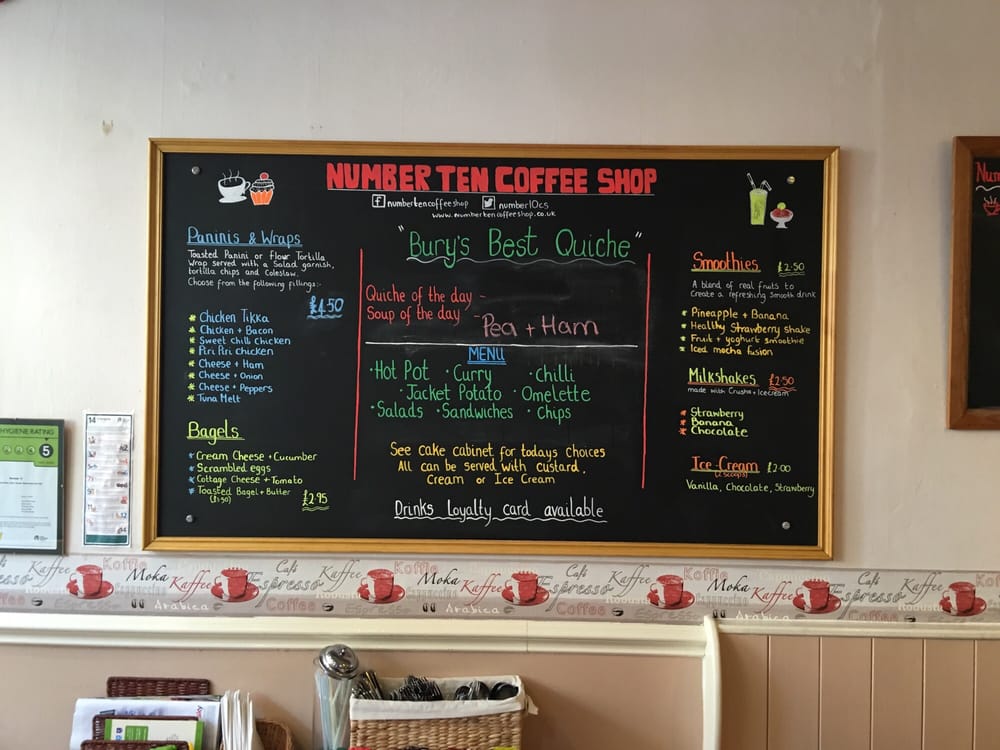 NUMBER TEN COFFEE SHOP
f numbertencoffeeshop number10cs
www.numbertencoffeeshop.co.uk
"Bury's Best Quiche"
Paninis & Wraps
Toasted Panini or Flour Tortilla
Wrap served with a Salad garnish,
tortilla chips and Coleslaw.
Choose from the following fillings:-
£4.50
Chicken Tikka
Chicken + Bacon
Sweet chilli chicken
Piri Piri chicken
Cheese + Ham
Cheese + Onion
Cheese + Peppers
Tuna Melt
Bagels
Cream Cheese + Cucumber
Scrambled eggs
Cottage Cheese + Tomato
Toasted Bagel + Butter
(£1.50)
£2.95
Quiche of the day -
Soup of the day - Pea + Ham
MENU
Hot Pot · Curry · Chilli
· Jacket Potato · Omelette
· Salads · Sandwiches · Chips
See cake cabinet for todays choices
All can be served with custard,
Cream or Ice Cream
Drinks Loyalty card available
Smoothies £2.50
A blend of real fruits to
Create a refreshing smooth drink
Pineapple + Banana
Healthy Strawberry shake
Fruit + yoghurt smoothie
Iced mocha fusion
Milkshakes £2.50
made with Crusha + Icecream
Strawberry
Banana
Chocolate
Ice-Cream £2.00
(2 scoops)
Vanilla, Chocolate, Strawberry
Num
HYGIENE RATING
5
Koffie Kaffee Moka Kaffee Café Espresso Coffee Arabica Robusta